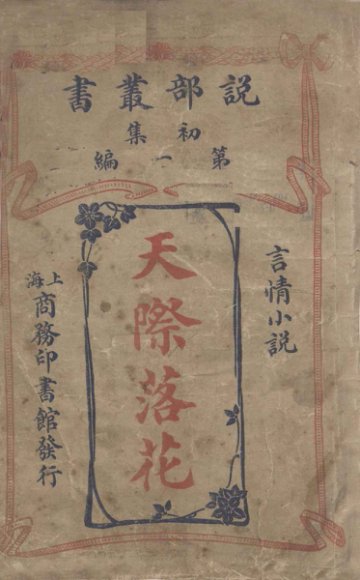 說部叢書
初集
第一編
言情小說
天際落花
上海
商務印書館發行